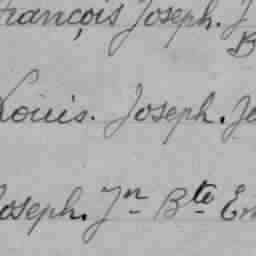 François Joseph. J
B
Louis. Joseph. Jo
Joseph. Jn Bte Em